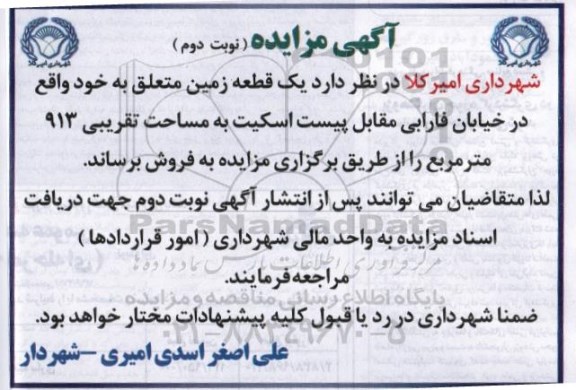 آگهی مزایده (نوبت دوم)
شهرداری امیرکلا در نظر دارد یک قطعه زمین متعلق به خود واقع
در خیابان فارابی مقابل پیست اسکیت به مساحت تقریبی ۹۱۳
مترمربع را از طریق برگزاری مزایده به فروش برساند.
لذا متقاضیان می توانند پس از انتشار آگهی نوبت دوم جهت دریافت
اسناد مزایده به واحد مالی شهرداری (امور قراردادها)
مراجعه فرمایند.
ضمنا شهرداری در رد یا قبول کلیه پیشنهادات مختار خواهد بود.
علی اصغر اسدی امیری - شهردار
ParsNamadData
پایگاه اطلاع رسانی مناقصه و مزایده